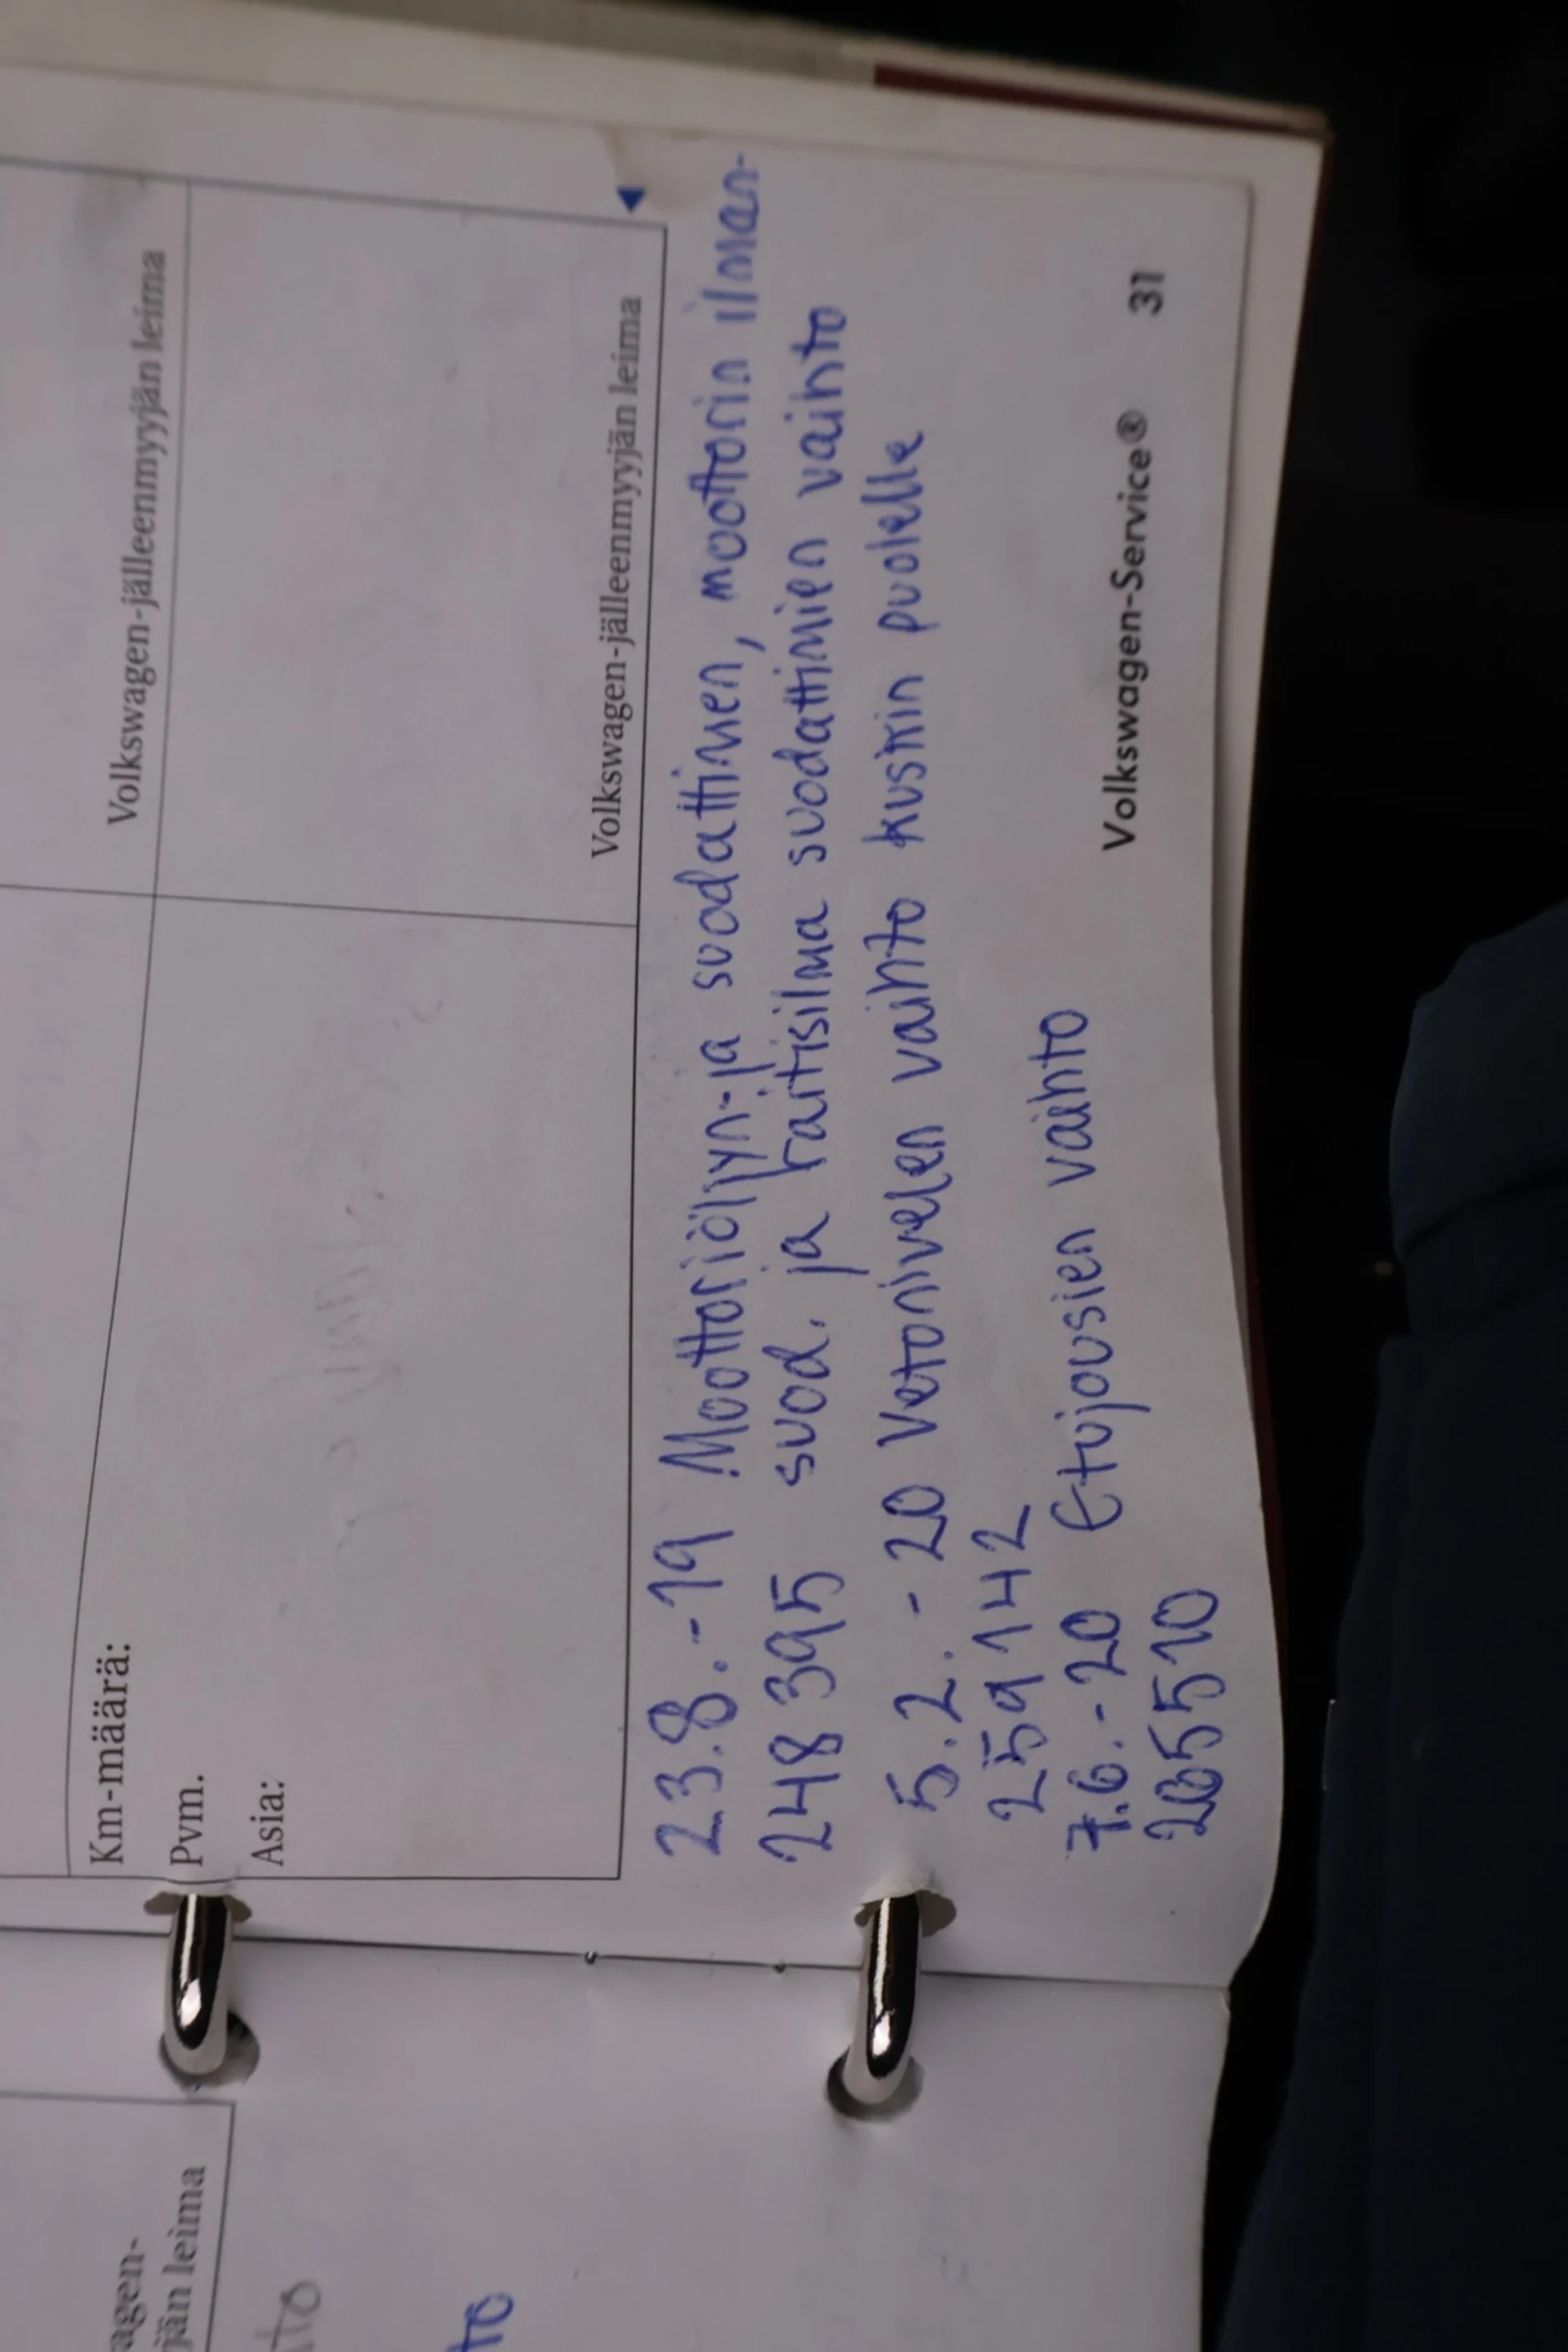 Volkswagen-jälleenmyyjän leima
Km-määrä:
Pvm.
Asia:
Volkswagen-jälleenmyyjän leima
23.8.-19 Moottoriöljyn-ja suodattimen, moottorin ilman-
248 395 suod. ja raitisilma suodattimien vaihto
5.2.-20 Vetonivelen vaihto kuskin puolelle
259 142
7.6.-20 Etujousien vaihto
265510
Volkswagen-Service® 31
agen-
jän leima
to